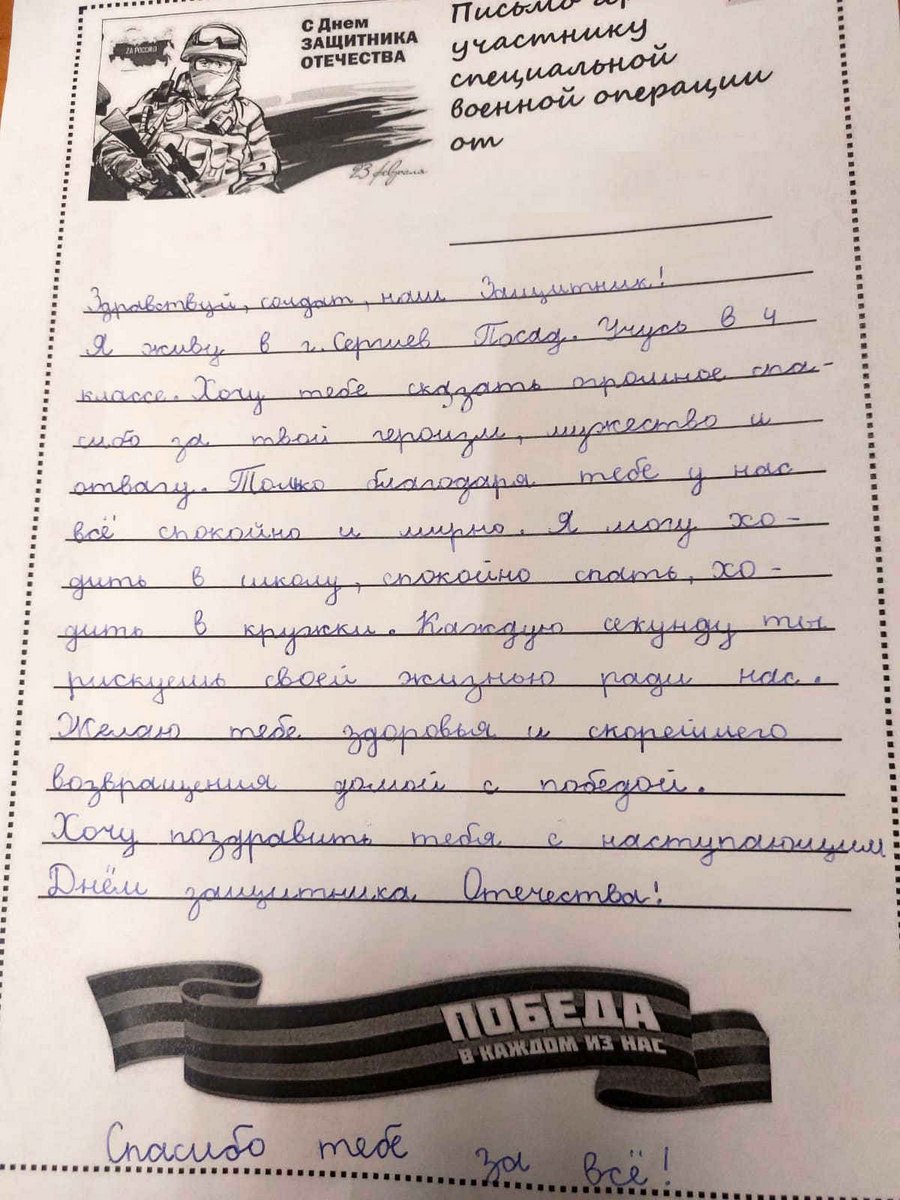 ZА РОССИЮ
С Днем
ЗАЩИТНИКА
ОТЕЧЕСТВА
23 февраля
Письмо
участнику
специальной
военной операции
от
Здравствуй, солдат, наш Защитник!
Я живу в г. Сергиев Посад. Учусь в 4
классе. Хочу тебе сказать огромное спа-
сибо за твой героизм, мужество и
отвагу. Только благодаря тебе у нас
всё спокойно и мирно. Я могу хо-
дить в школу, спокойно спать, хо-
дить в кружки. Каждую секунду ты
рискуешь своей жизнью ради нас.
Желаю тебе здоровья и скорейшего
возвращения домой с победой.
Хочу поздравить тебя с наступающим
Днём защитника Отечества!
ПОБЕДА
В КАЖДОМ ИЗ НАС
Спасибо тебе за всё!